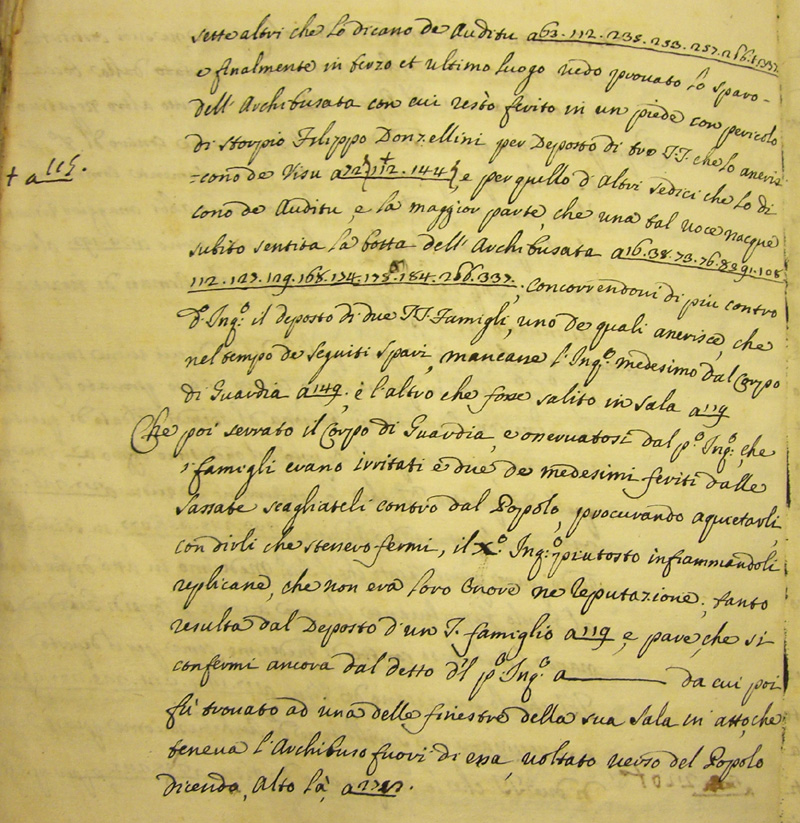 sette altri che lo dicano de Auditu a 63. 112. 235. 253. 257. 266. 337.
e finalmente in terzo et ultimo luogo vedo provato lo sparo
dell'Archibusata con cui restò ferito in un piede con pericolo
di storpio Filippo Donzellini per Deposto di tre TT. che lo asseris
=cono de Visu a 72 112. 144, e per quello d'Altri sedici che lo di
+ a 115.
cono de Auditu, e la maggior parte, che una tal voce nacque
subito sentita la botta dell'Archibusata a 16. 38. 73. 76. 91. 108
112. 127. 129. 168. 174. 175. 184. 266. 337., concorrendovi di piu contro
d.º Inq.º il deposto di due TT. Famigli, uno de quali asserisce, che
nel tempo de seguiti spari, mancasse l'Inq.º medesimo dal Corpo
di Guardia a 149, e l'altro che fosse salito in sala a 119
Che poi serrato il Corpo di Guardia, e osservatosi dal p.º Inq.º, che
i famigli erano irritati e due de medesimi feriti dalle
sassate scagliateli contro dal Popolo, procurando aquietarli,
con dirli che stessero fermi, il Inq.º piutosto infiammandoli
replicasse, che non era loro onore ne reputazione, tanto
resulta dal Deposto d'un T. famiglio a 119, e pare, che si
confermi ancora dal detto d'l p.º Inq.º a da cui poi
fù trovato ad una delle finestre della sua sala in atto, che
teneva l'Archibuso fuori di essa, voltato verso del Popolo
dicendo, Alto là,